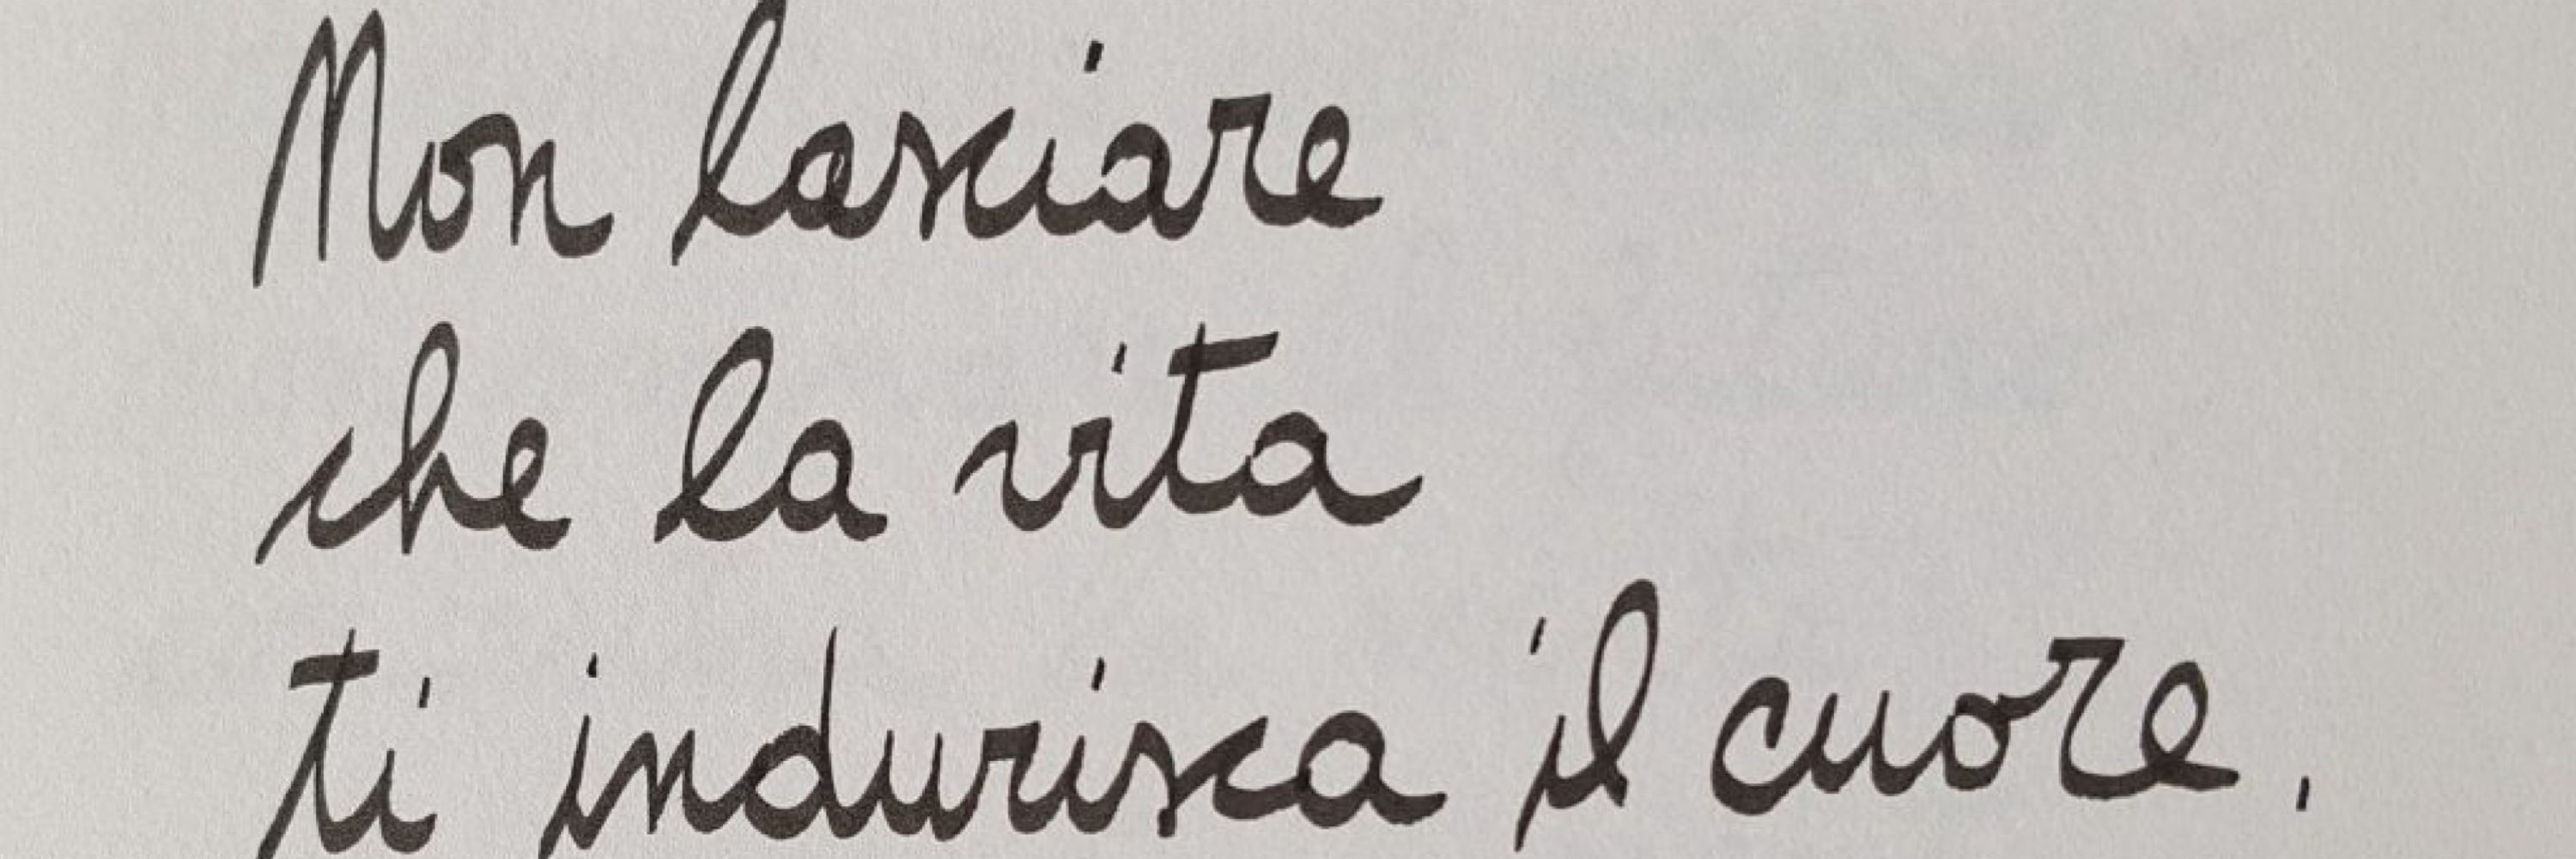 Non lasciare
che la vita
ti indurisca il cuore.